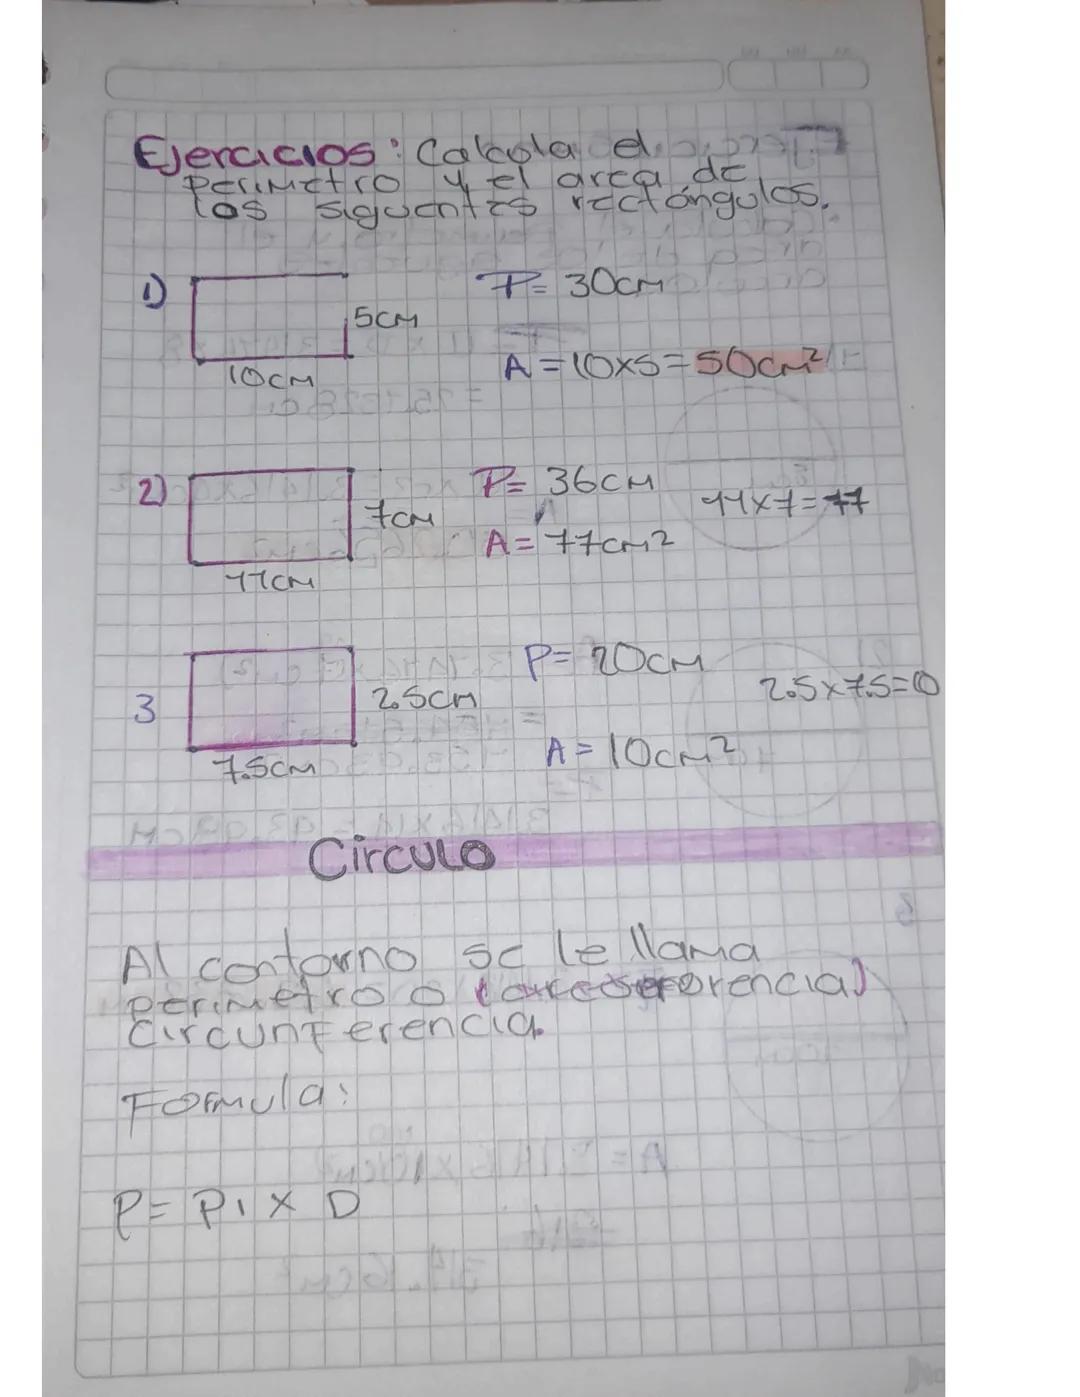 Ejercicios: Calcula el
perimetro y el area de
los siguentes rectángulos.
1)
P= 30cm
5cm
10cm
A =10x5=50cm²
2)
P= 36cm
7cm
11x7=77
A= 77cm2
11cm
3
P= 20cm
2.5cm
2.5x7.5=10
A= 10cm2
7.5cm
Círculo
Al contorno se le llama
perimetro o
circunferencia.
Formula:
P= PI x D